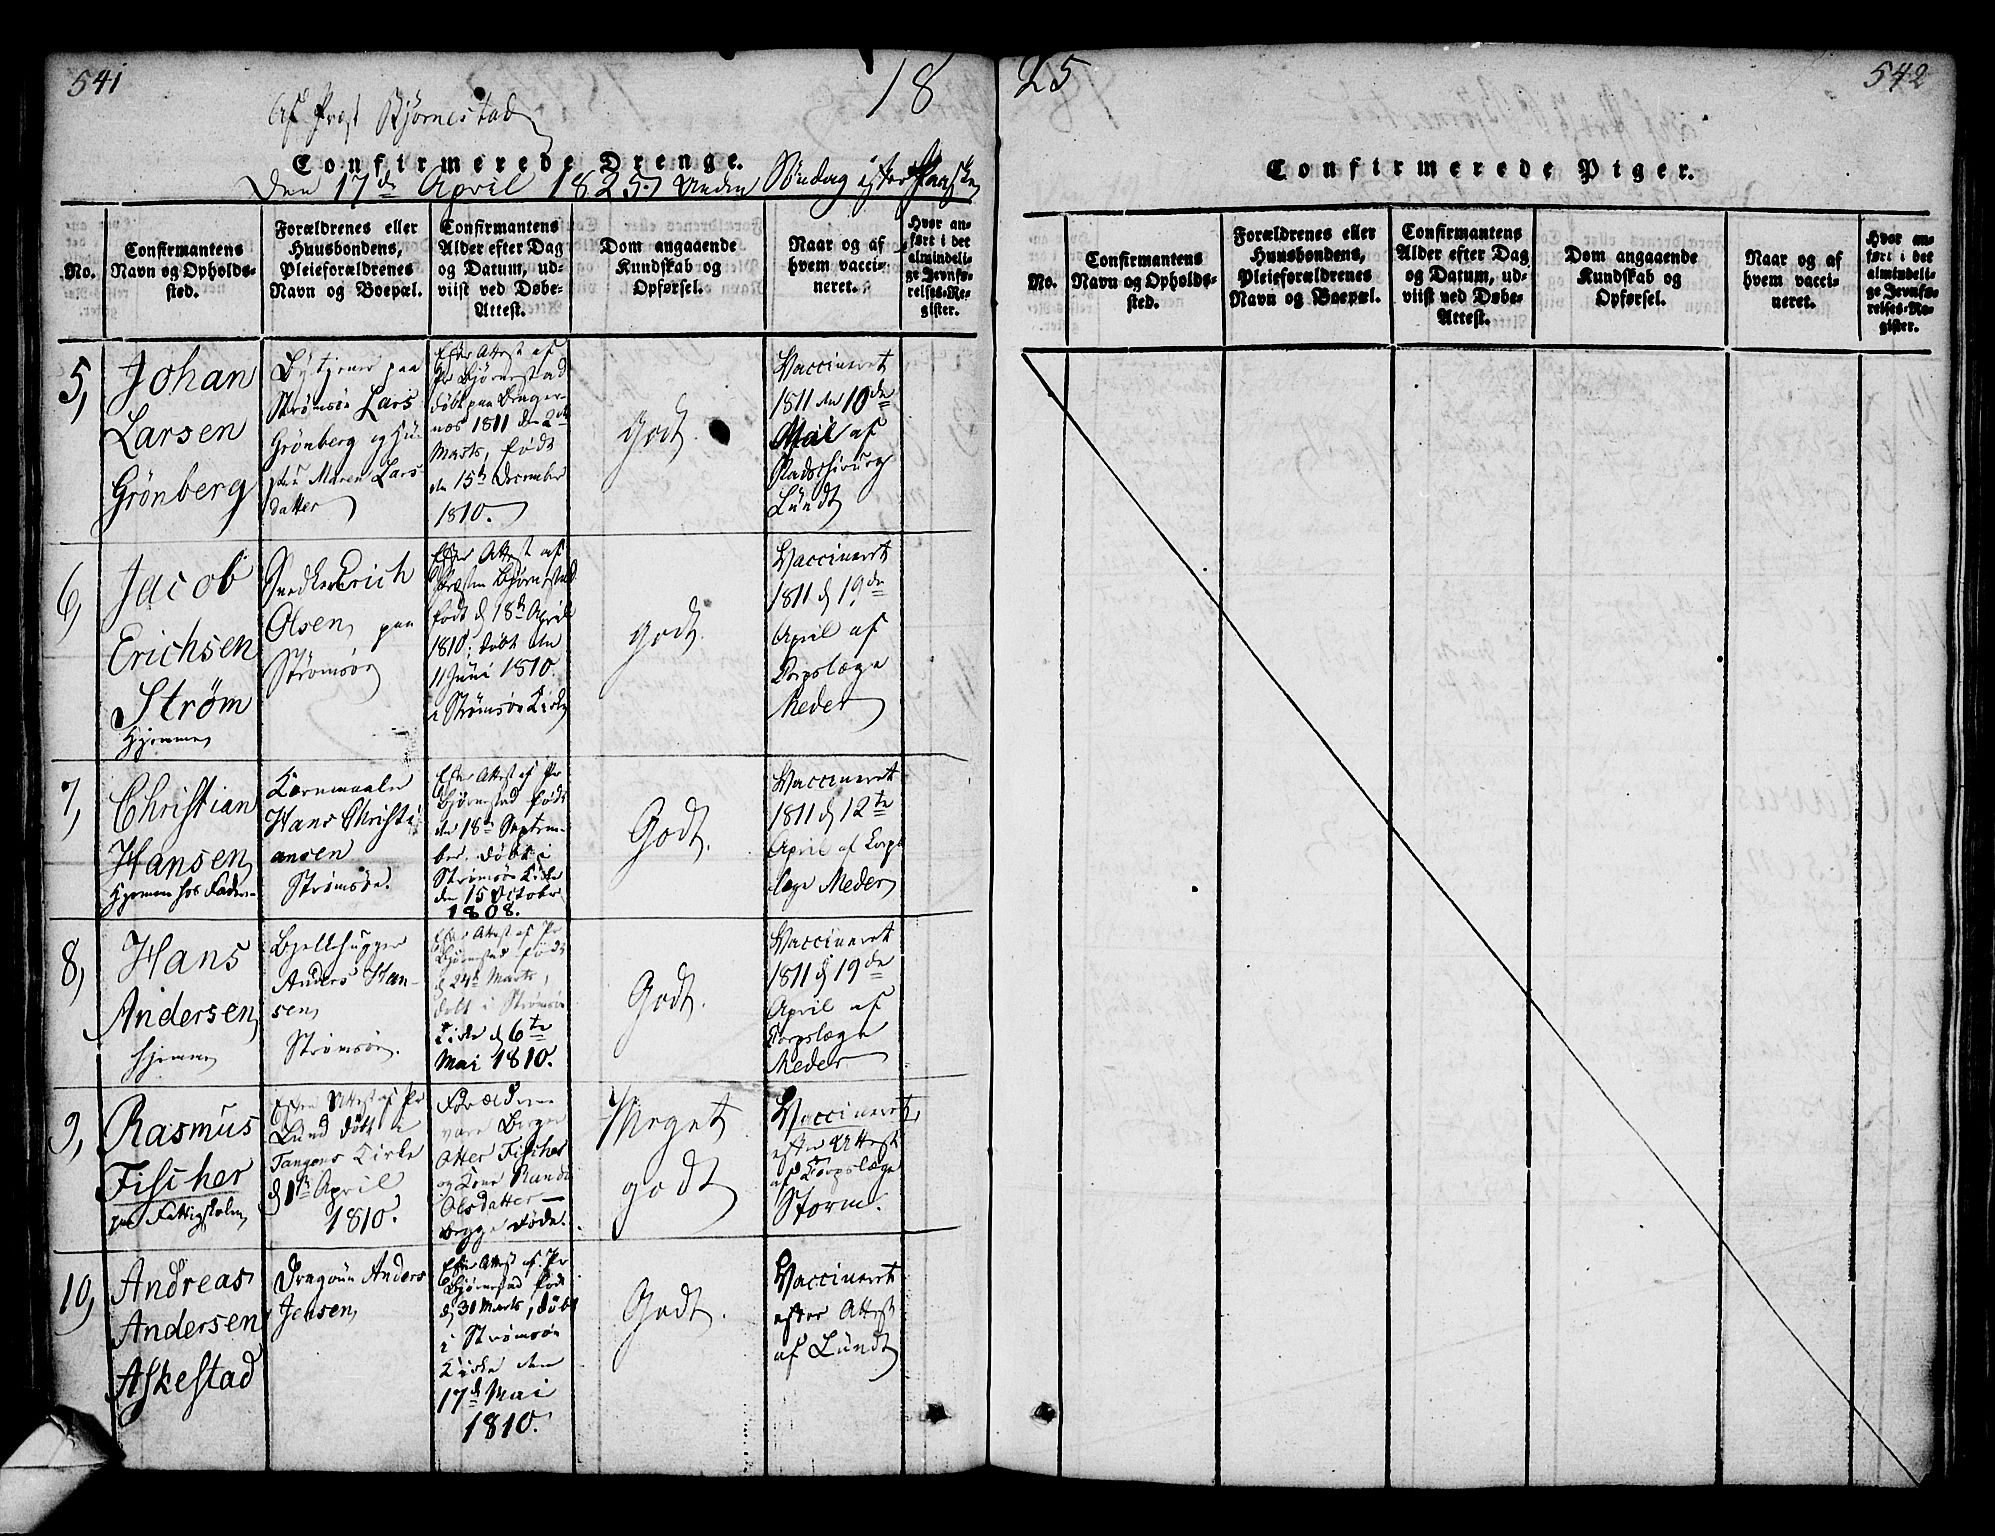 541
18
25
542
Af Præst Bjørnestad
Confirmerede Drenge.
Den 17de April 1825, Anden Søndag efter Paaske
No.
Confirmantens
Navn og Opholds-
sted.
Forældrenes eller
Huusbondens,
Pleieforældrenes
Navn og Boepæl.
Confirmantens
Alder efter Dag
og Datum, ud-
viist ved Døbe-
Attest.
Dom angaaende
Kundskab og
Opførsel.
Naar og af
hvem vacci-
neret.
Hvor an-
ført i det
almindeli-
ge Jevnfø-
relses-Re-
gister.
5,
Johan
Larsen
Grönberg
paa
Strømsöe Lars
Grönberg og
Maren Lars
datter
Efter Attest af
Pr Bjørnestad
døbt paa Brager-
næs 1811 den 2den
Marts, født
den 15de December
1810.
Godt.
Vaccineret
1811 den 10de
Mai af
Lündt
6,
Jacob
Erichsen
Strøm
hjemme
Snedker Erich
Olsen, paa
Strömsöe
Efter Attest af
Præsten Bjørnestad
født d 18de April
1810; døbt den
11 Juni 1810.
i Strömsöe Kirke
Godt.
Vaccineret
1811 d 19de
April af
Korpslæge
Meder
7,
Christian
Hansen,
hjemme hos Faderen
Kornmaaler
Hans Christi
ansen
Strömsöe.
Efter Attest af Pr
Bjørnestad født
den 18de Septem-
ber, døbt i
Strømsöe Kirke
den 15 October
1808.
Godt.
Vaccineret
1811 d 12te
April af Korps
læge Meder
8,
Hans
Andersen,
hjemme
Bjelkehugger
Anders Han-
sen,
Strømsöe.
Efter Attest af Pr
Bjørnestad født
d 24de Marts,
døbt i Strømsöe
Kirke d 6te
Mai 1810.
Godt.
Vaccineret
1811 d 19de
April af
Korpslæge
Meder
9,
Rasmus
Fischer
paa Fattigskolen
Efter Attest af Pr
Lund døbt i
Tangens Kirke
d 1ste April
1810.
Forældrene
vare Borger
Fischer
og Kone
Olsdatter —
begge døde.
Meget
godt
Vaccineret,
efter Attest
af Korpslæge
Storm.
10,
Andreas
Andersen
Askestad
Dragoun Anders
Jensen,
Efter Attest af Pr
Bjørnestad født
d 30 Marts, døbt
i Strømsöe
Kirke den
17de Mai
1810.
Godt.
Vaccineret
efter Attest
af Lündt
Confirmerede Piger.
No.
Confirmantens
Navn og Opholds-
sted.
Forældrenes eller
Huusbondens,
Pleieforældrenes
Navn og Boepæl.
Confirmantens
Alder efter Dag
og Datum, ud-
viist ved Døbe-
Attest.
Dom angaaende
Kundskab og
Opførsel.
Naar og af
hvem vacci-
neret.
Hvor an-
ført i det
almindeli-
ge Jevnfø-
relses-Re-
gister.